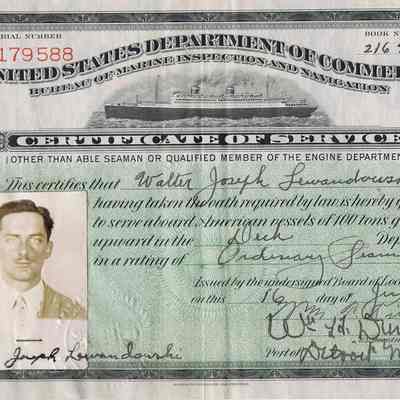 ERIAL NUMBER BOOK N
179588 216
NITED STATES DEPARTMENT OF COMME
BUREAU OF MARINE INSPECTION AND NAVIGATION
CERTIFICATE OF SERVICE
(OTHER THAN ABLE SEAMAN OR QUALIFIED MEMBER OF THE ENGINE DEPARTMEN
This certifies that Walter Joseph Lewandows
having taken the oath required by law is hereby
to serve aboard American vessels of 100 tons g
upward in the Deck Dep
in a rating of Ordinary Seam
Issued by the undersigned Board of Loc
on this 16 day of Ju
Wm H
Joseph Lewandowski
Port of Detroit M